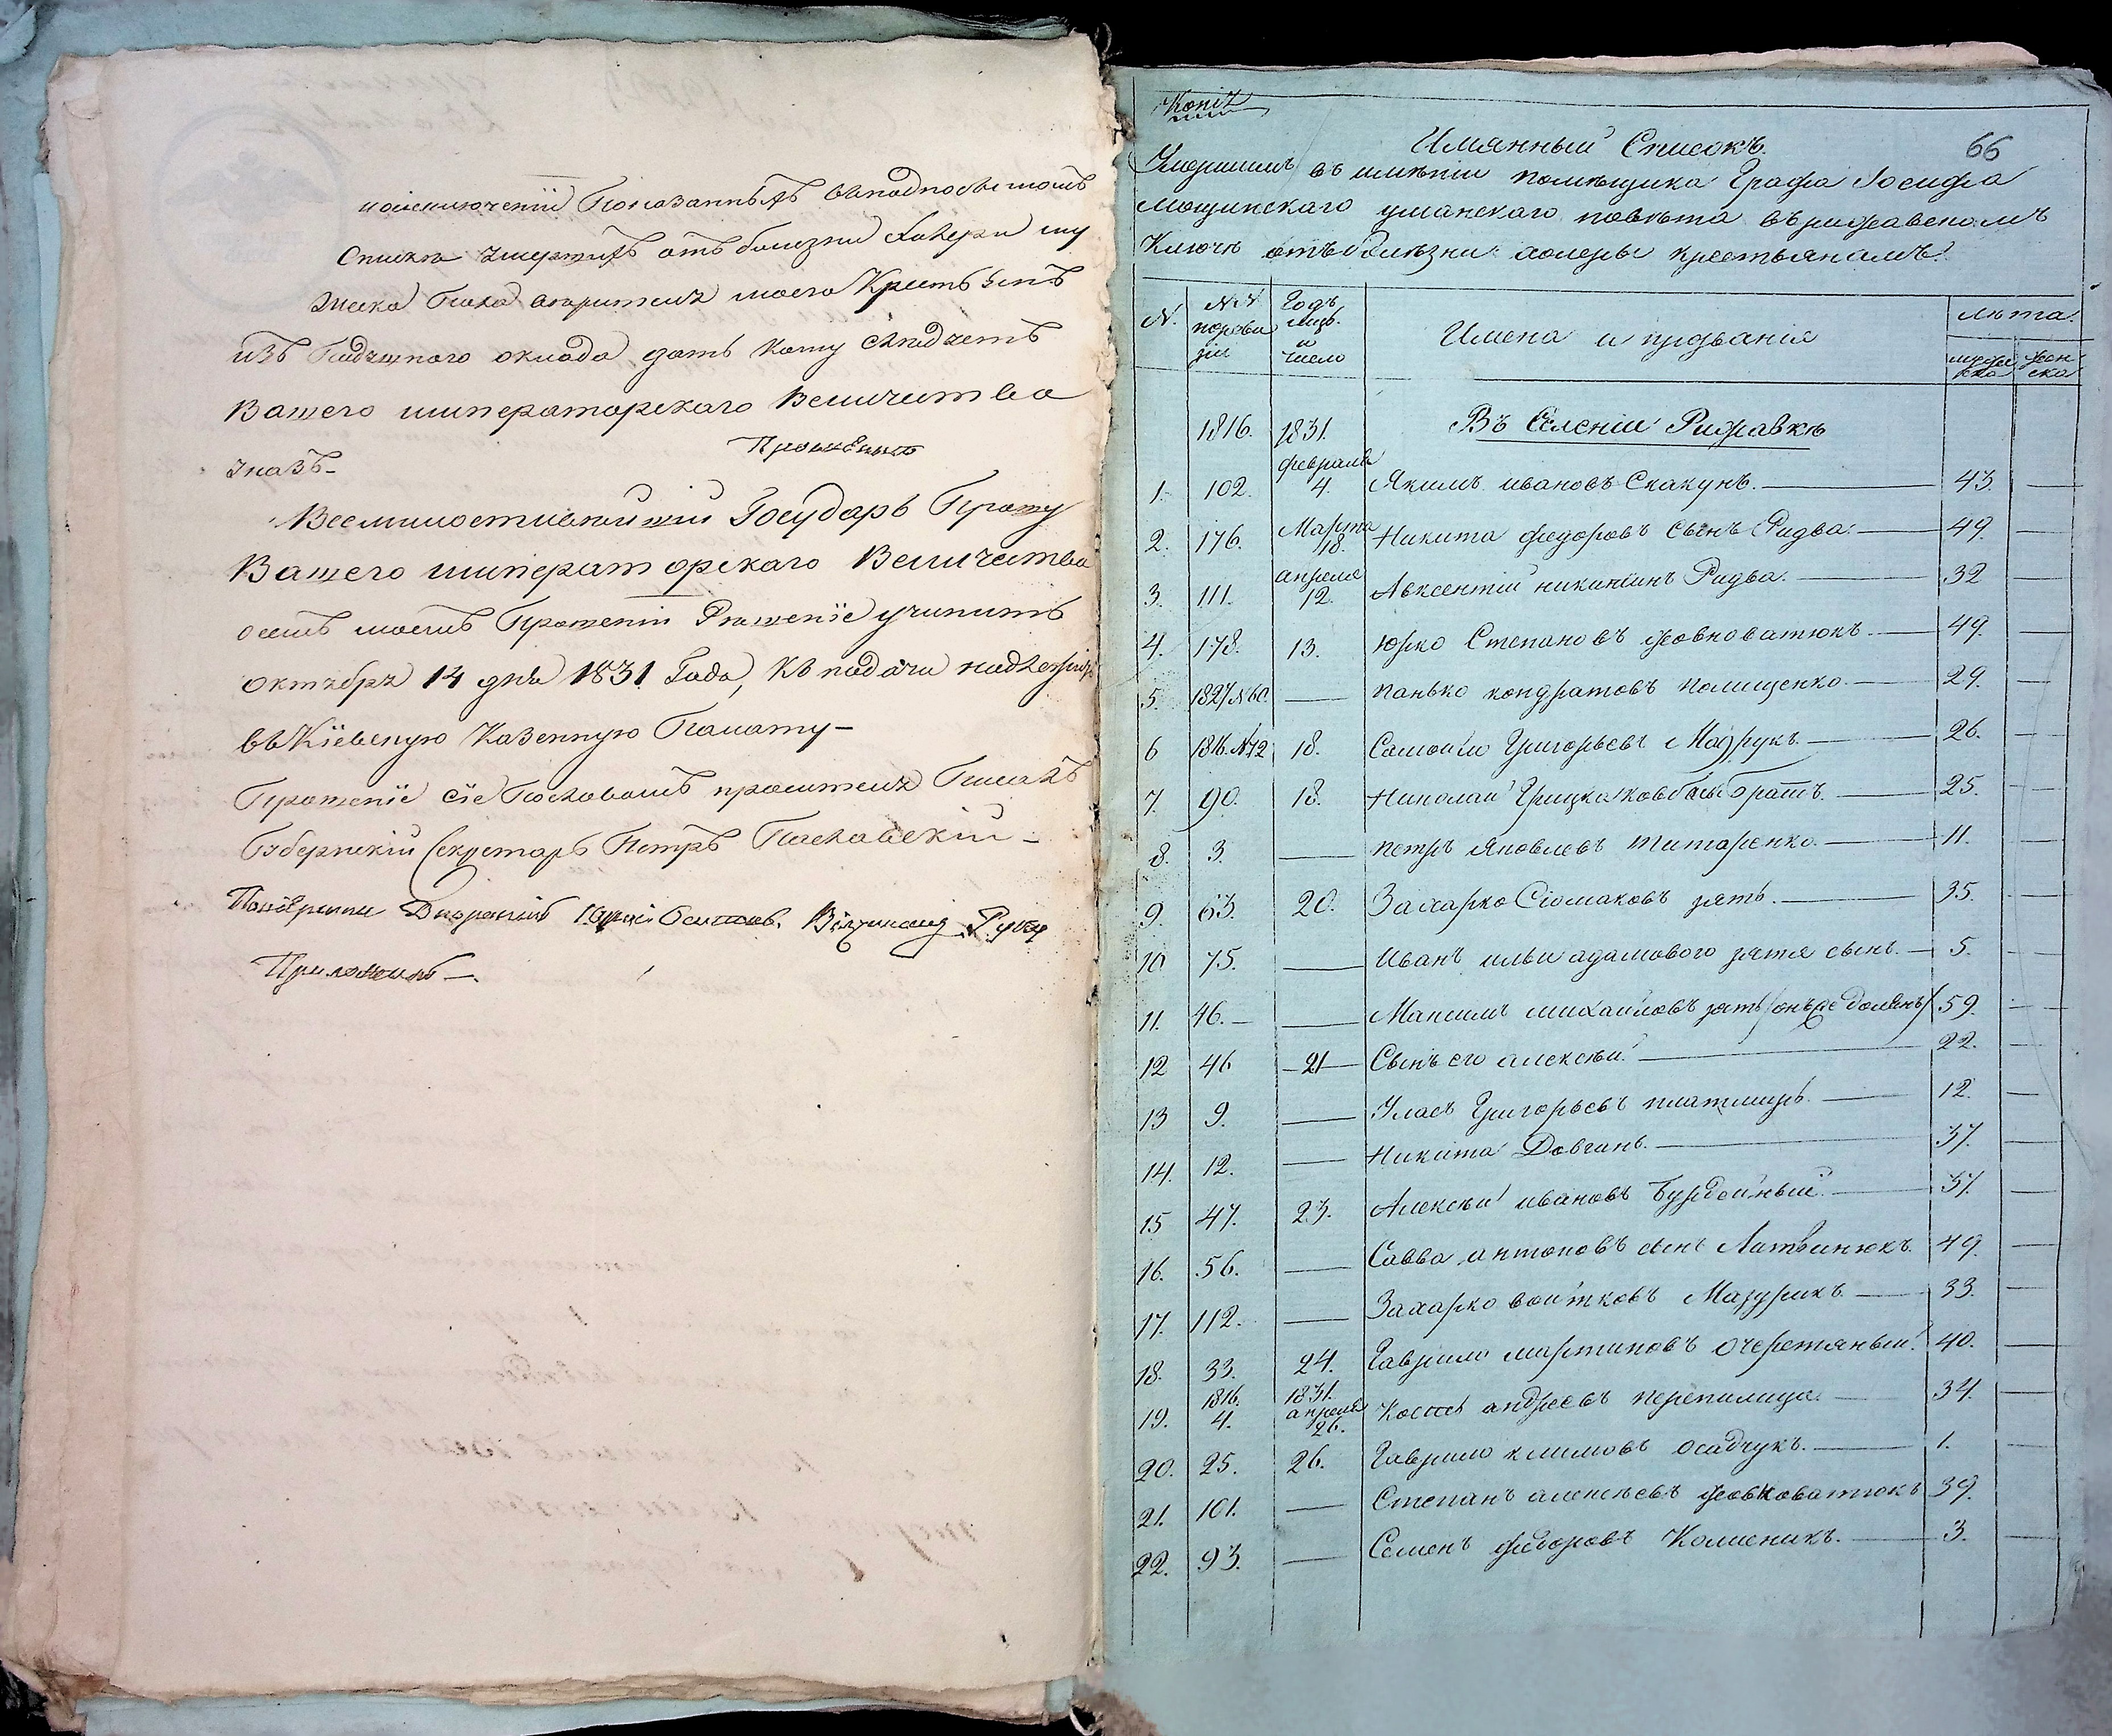 Показаннымъ въ подносимомъ
Списке умершихъ отъ болезни Холери му
жеска Пола доверителя моего Крестьянъ
изъ Подушного оклада дать кому следуетъ
Вашего императорскаго Величества
указъ-
Всемилостивейший Государь Прошу
Вашего императорскаго Величества
о семъ моемъ Прошении Решенїе учинить
октября 14 дня 1831 Года, къ подачи надлежитъ
въ Кїевскую Казенную Палату-
Прошенїе сїе Пословамъ просителя Писалъ
Губернский Секретарь Петръ
Приложилъ-.
Копия
66
Имянный Списокъ
Умершимъ въ имении помещика Графа Іосифа
Мощинскаго уманскаго повета въ рижавскомъ
Ключе отъ болезни холеры крестьянамъ.
N. | NN ревизии | Годъ месц. и число | Имена и прозвания | лета.
мужеска | женска
1816. | 1831. | Въ Селении Рижавке
1. | 102. | февраля 4. | Якимъ ивановъ Скакунъ. | 43.
2. | 176. | Марта 18. | Никита федоровъ сынъ Ридва. | 49.
3. | 111. | апреля 12. | Авксентий никитинъ Ридва. | 32
4. | 178. | 13. | Юрко Степановъ жовноватюкъ. | 49.
5. | 1827 N 60. | — | панько кондратовъ полищенко. | 29.
6 | 1816. N 72 | 18. | Самоило Григорьевъ Мазрукъ. | 26.
7. | 90. | 18. | Николай Грицка братъ. | 25.
8. | 3. | — | петръ Яковлевъ титаренко. | 11.
9. | 63. | 20. | Захарко Сїомаковъ зять. | 35.
10 | 75. | — | Иванъ ильи адамового зятя сынъ. | 5.
11. | 46.- | — | Максимъ михаиловъ зять | 59.
12 | 46 | -21- | Сынъ его алексей | 22.
13 | 9. | — | Уласъ Григорьевъ | 12.
14. | 12. | — | Никита Довганъ. | 37.
15 | 47. | 23. | Алексей ивановъ Бурдейный. | 37.
16. | 56. | — | Савва антоновъ сынъ Литвинюкъ. | 49.
17. | 112. | — | Захарко войтковъ Мазурикъ. | 33.
18. | 33. | 24. | Гаврило мартиновъ очеретяный. | 40.
19. | 1816. 4. | 1831. апреля 26. | Костя андреевъ перепилица. | 34.
20. | 25. | 26. | Гаврило климовъ осадчукъ. | 1.
21. | 101. | — | Степанъ алексеевъ жовноватюкъ | 39.
22. | 93. | — | Семенъ федоровъ Колисникъ. | 3.